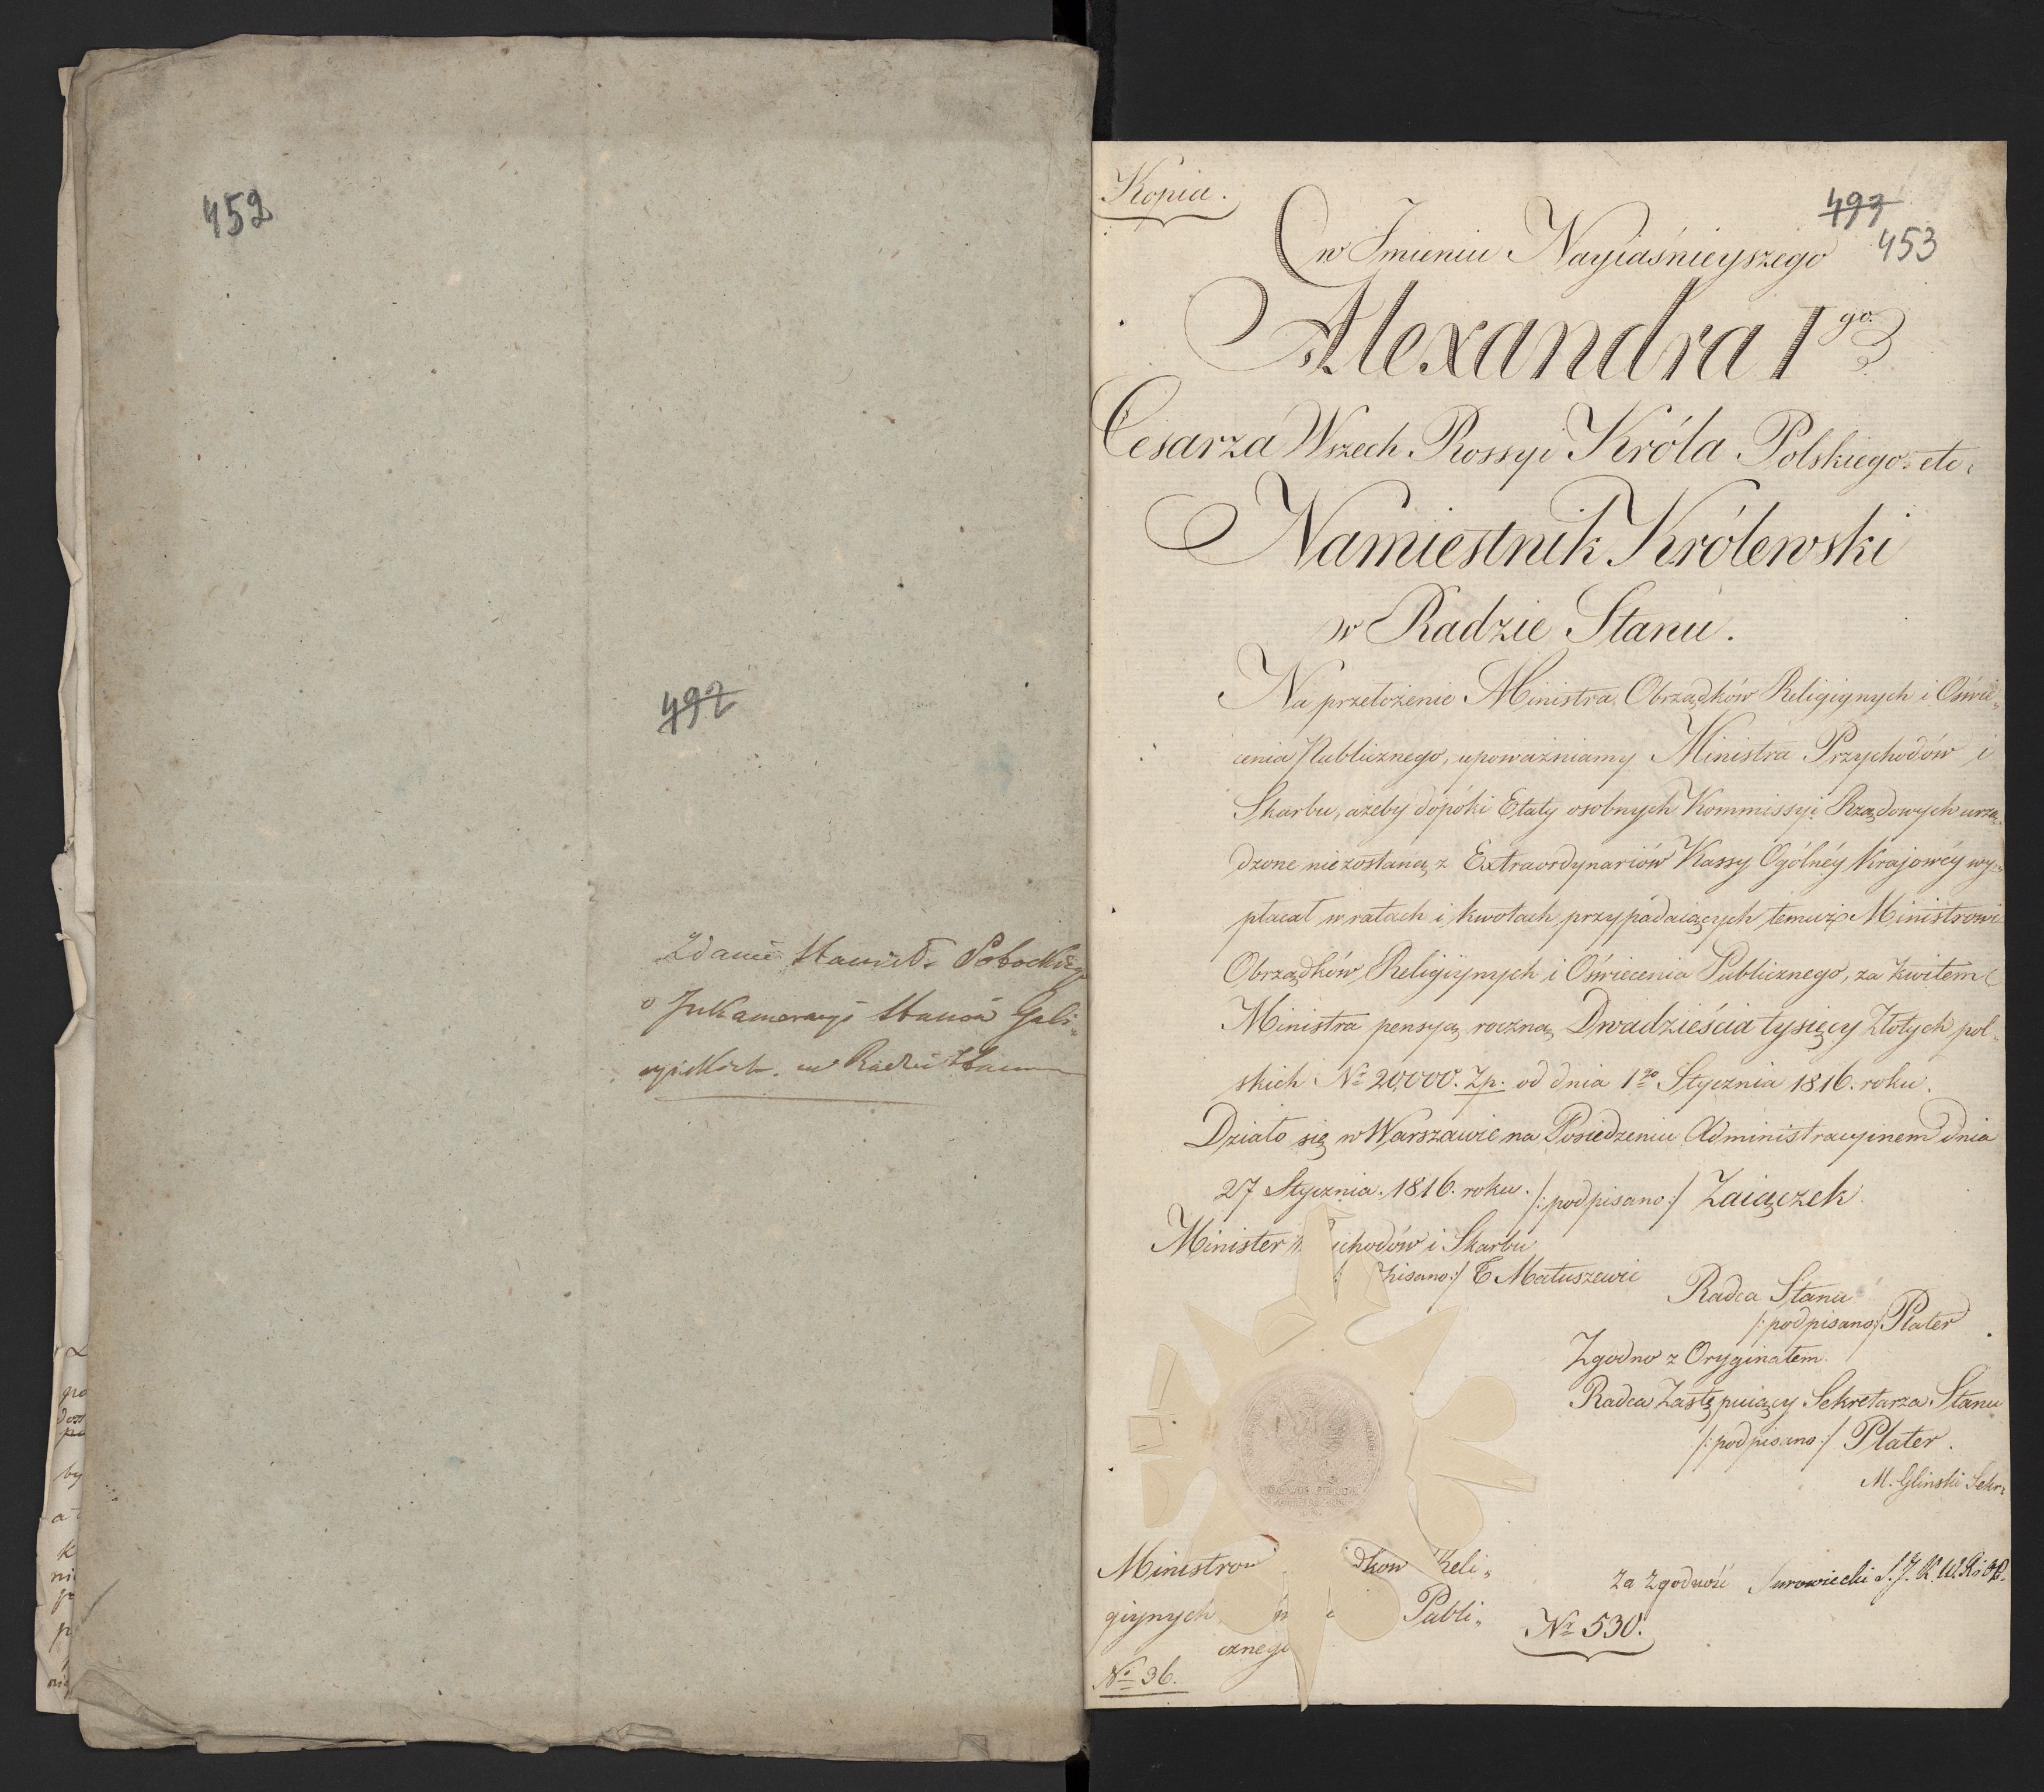 452
492
Zdanie Stanisł. Potockiego
o Inkameracyi Stanów Gali-
cyiskich w Radzie Stanu
Kopia.
493
453
w Imieniu Nayiaśnieyszego
Alexandra Igo.
Cesarza Wszech Rossyi Króla Polskiego etc.
Namiestnik Królewski
w Radzie Stanu.
Na przełożenie Ministra Obrządków Religiynych i Oświe„
cenia Publicznego, upoważniamy Ministra Przychodów i
Skarbu, ażeby dopóki Etaty osobnych Kommissyi Rządowych urzą„
dzone niezostaną, z Extraordynariów Kassy Ogólnéy Krajowéy wy„
płacał w ratach i kwotach przypadaiących temuż Ministrowi
Obrządków Religiynych i Oświecenia Publicznego, za kwitem
Ministra pensyą roczną Dwadzieścia tysięcy Złotych pol„
skich No 20,000. Zp. od dnia 1go Stycznia 1816. roku.
Działo się w Warszawie na Posiedzeniu Administracyinem dnia
27 Stycznia. 1816. roku. /:podpisano:/ Zaiączek.
Minister chodów i Skarbu
pisano:/ T. Matuszewic
Radca Stanu
/:podpisano:/ Plater
Zgodno z Oryginałem.
Radca Zastępuiący Sekretarza Stanu
/:podpisano:/ Plater.
M. Glinski Sekr:
Ministrow dkow Reli„
giynych Publi„
cznego
No 36.
Za zgodność Surowiecki
Nr 530.